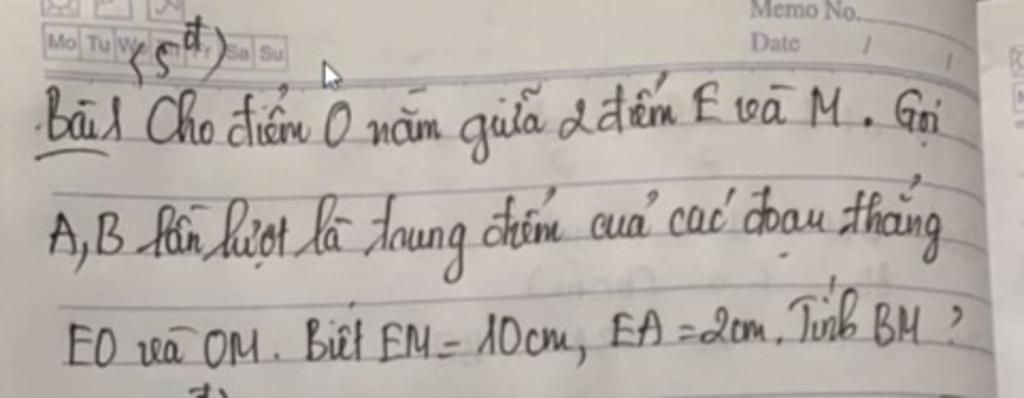 Memo No.
Mo Tu We Sa Su
Date / /
(5đ)
Bài 1 Cho điểm O nằm giữa 2 điểm E và M. Gọi
A, B lần lượt là trung điểm của các đoạn thẳng
EO và OM. Biết EM = 10cm, EA = 2cm. Tính BM ?